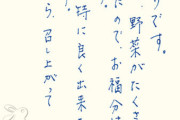 りです。
、野菜がたくさ
たので、お福分け
。
特に良く出来
ら、召し上がって